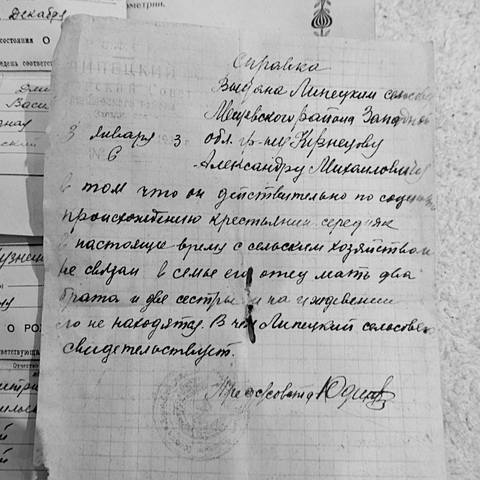 Декабря
метрии.
состояния О
Справка
ЛИПЕЦКИЙ
Выдана Липецким сельсов
Мещевского района Западной
3 января 3 обл. гр-ну Кузнецову
6
Александру Михайловичу
в том что он действительно по социаль
происхождению крестьянин середняк
В настоящие время с сельским хозяйством
не связан в семье его отец мать два
брата и две сестры и на иждевении
его не находятся. В чем Липецкий сельсовет
свидетельствует.
Предсовета Юдин
Васи
ская
узне
О РО